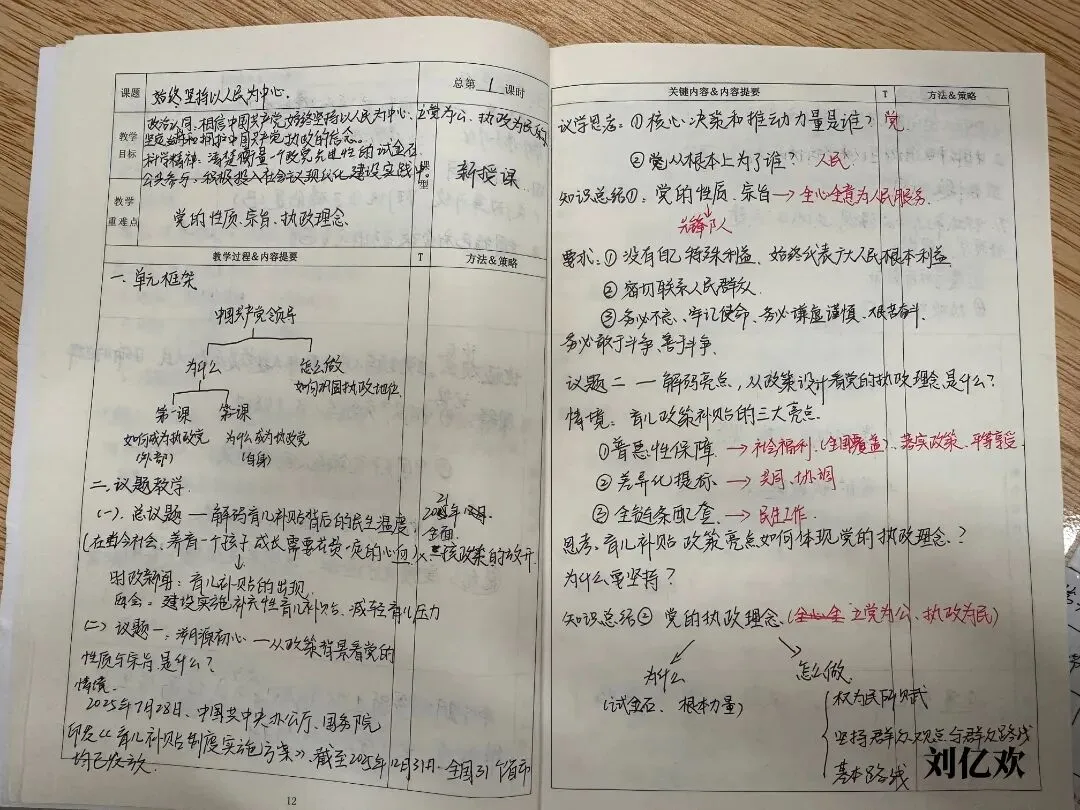 课题 始终坚持以人民为中心. 总第 1 课时
教学目标
政治认同：相信中国共产党始终坚持以人民为中心、立党为公、执政为民的
坚定支持和拥护中国共产党执政的信念。
科学精神：清楚衡量一个政党先进性的试金石.
公共参与：积极投入社会主义现代化建设实践中.
课型 新授课
教学重难点 党的性质、宗旨、执政理念.
教学过程&内容提要 T 方法&策略
一、单元框架
中国共产党领导
为什么 怎么做
如何巩固执政地位
第一课 第二课
如何成为执政党 为什么成为执政党
(外部) (自身)
二、议题教学.
(一)、总议题 — 解码育儿补贴背后的民生温度.
(在当今社会、养育一个孩子成长需要花费一定的心血)
全面
三孩政策的放开
时政新闻：育儿补贴的出现.
两会：建设实施补充性育儿补贴、减轻育儿压力
(二) 议题一：溯源初心 — 从政策背景看党的
性质与宗旨是什么?
情境.
2025年7月28日、中国共中央办公厅、国务院
印发《育儿补贴制度实施方案》、截至2025年12月31日、全国31个省市
均已发放.
12
关键内容&内容提要 T 方法&策略
议学思考：①核心决策和推动力量是谁? 党
②党从根本上为了谁? 人民
知识总结①：党的性质、宗旨→全心全意为人民服务.
先锋队
要求：①没有自己特殊利益、始终代表广大人民根本利益
②密切联系人民群众.
③务必不忘、牢记使命、务必谦虚谨慎、艰苦奋斗.
务必敢于斗争、善于斗争.
议题二 — 解码亮点，从政策设计看党的执政理念是什么?
情境：育儿政策补贴的三大亮点.
①普惠性保障 → 社会福利.(全国覆盖)、落实政策、平等享受
②差异化提标 → 共同、协调
③全链条配套. → 民生工作.
思考、育儿补贴政策亮点如何体现党的执政理念.?
为什么要坚持?
知识总结② 党的执政理念.(全心全 立党为公、执政为民)
为什么 怎么做.
(试金石、根本力量)
权为民所赋
坚持群众观点与群众路线
基本路线
刘亿欢